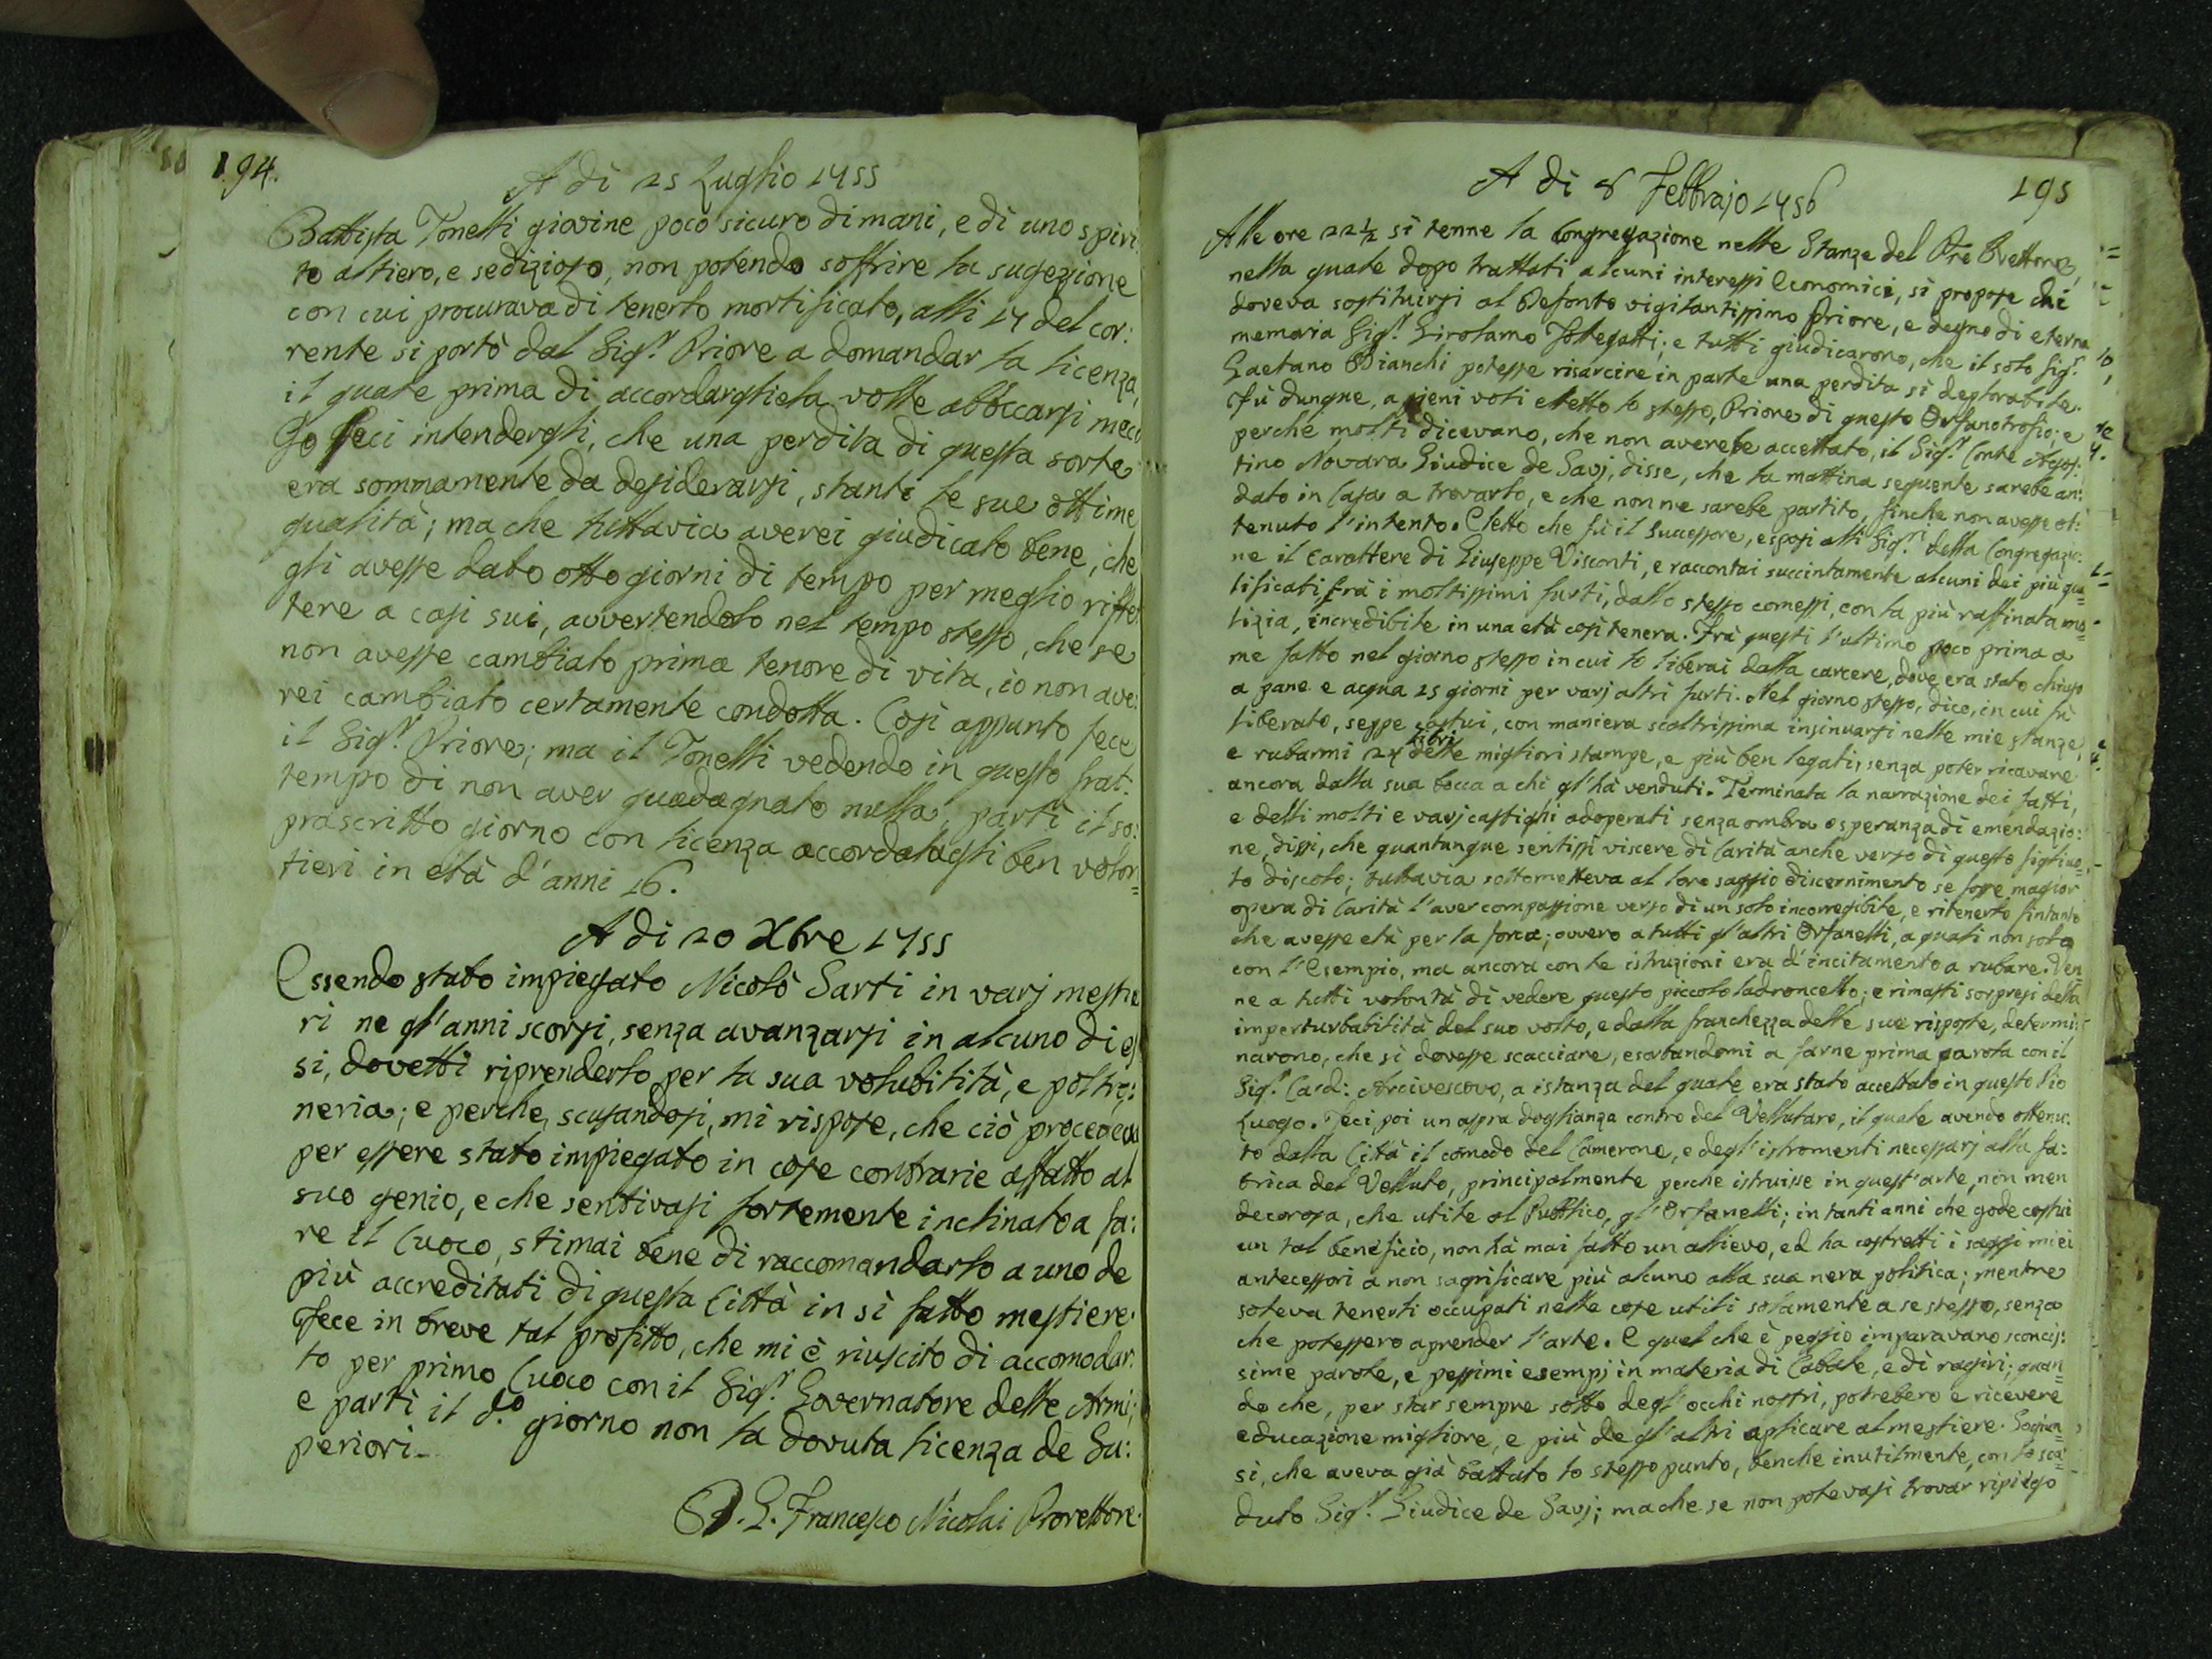 194.
A di 25 Luglio 1755
Battista Tonelli giovine poco sicuro di mani, e di uno spiri
to altiero, e sedizioso, non potendo soffrire la sugezzione
con cui procurava di tenerlo mortificato, alli 17 del cor:
rente si portò dal Sig.r Priore a domandar la licenza,
il quale prima di accordargliela volle abboccarsi meco
Io feci intendergli, che una perdita di questa sorte
era sommamente da desiderarsi, stanti le sue ottime
qualità; ma che tuttavia averei giudicato bene, che
gli avesse dato otto giorni di tempo per meglio riflet
tere a casi sui, avvertendolo nel tempo stesso, che se
non avesse cambiato prima tenore di vita, io non ave:
rei cambiato certamente condotta. Così appunto fece
il Sig.r Priore; ma il Tonelli vedendo in questo frat:
tempo di non aver guadagnato nulla, partì il so:
prascritto giorno con licenza accordatagli ben volon=
tieri in età d'anni 16.
A di 20 Xbre 1755
Essendo stato impiegato Nicolò Sarti in varj mestie
ri ne gl'anni scorsi, senza avanzarsi in alcuno di es
si, dovetti riprenderlo per la sua volubilità, e poltro:
neria; e perche, scusandosi, mi rispose, che ciò procedeva
per essere stato impiegato in cose contrarie affatto al
suo genio, e che sentivasi fortemente inclinato a fa:
re il Cuoco, stimai bene di raccomandarlo a uno de
più accreditati di questa Città in sì fatto mestiere.
Fece in breve tal profitto, che mi è riuscito di accomodar:
lo per primo Cuoco con il Sig.r Governatore delle Armi;
e partì il d.o giorno non la dovuta licenza de Su:
periori.
D. G. Francesco Nicolai Prorettore.
195
A di 8 Febbrajo 1756
Alle ore 22½ si tenne la Congregazione nelle Stanze del Pre Rettore,
nella quale dopo trattati alcuni interessi Economici, si propose chi
doveva sostituirsi al Defonto vigilantissimo Priore, e degno di eterna
memoria Sig.r Girolamo Follegatti; e tutti giudicarono, che il solo Sig.r
Gaetano Bianchi potesse risarcire in parte una perdita sì deplorabile.
Fù dunque, a pieni voti eletto lo stesso, Priore di questo Orfanotrofio; e
perche molti dicevano, che non averebe accettato, il Sig.r Conte Agos:
tino Novara Giudice de Savj, disse, che la mattina sequente sarebe an:
dato in Casa a trovarlo, e che non ne sarebe partito, finche non avesse ot:
tenuto l'intento. Eletto che fù il Successore, esposi alli Sig.ri della Congregazio:
ne il carattere di Giuseppe Visconti, e raccontai succintamente alcuni dei più qua=
lificati, frà i moltissimi furti, dallo stesso comessi, con la più raffinata ma=
lizia, incredibile in una età così tenera. Frà questi l'ultimo poco prima a
me fatto nel giorno stesso in cui lo liberai dalla carcere, dove era stato chiuso
a pane e acqua 25 giorni per varj altri furti. Nel giorno stesso, dico, in cui fù
liberato, seppe costui, con maniera scaltrissima insinuarsi nelle mie stanze,
e rubarmi 24 libri delle migliori stampe, e più ben legati, senza poter ricavare
ancora dalla sua bocca a chi gl'hà venduti. Terminata la narrazione dei fatti,
e delli molti e varj castighi adoperati senza ombra o speranza di emendazio:
ne, dissi, che quantunque sentissi viscere di Carità anche verso di questo figliuo=
lo discolo; tuttavia sottometteva al loro saggio discernimento se fosse magior
opera di Carità l'aver compassione verso di un solo incorregibile, e ritenerlo fintanto
che avesse età per la forca; ovvero a tutti gl'altri Orfanelli, a quali non solo
con l'Esempio, ma ancora con le istruzioni era d'incitamento a rubare. Ven=
ne a tutti volontà di vedere questo piccolo ladroncello; e rimasti sorpresi della
imperturbabilità del suo volto, e dalla franchezza delle sue risposte, determi:
narono, che si dovesse scacciare, esortandomi a farne prima parola con il
Sig.r Card: Arcivescovo, a istanza del quale era stato accettato in questo Pio
Luogo. Feci poi un aspra doglianza contro del Vellutaro, il quale avendo ottenu:
to dalla Città il comodo del Camerone, e degl'istromenti necessarj alla fa:
brica del Velluto, principalmente perche istruisse in quest'arte, non men
decorosa, che utile al Pubblico, gl'Orfanelli; in tanti anni che gode costui
un tal beneficio, non hà mai fatto un allievo, ed ha costretti i saggi miei
antecessori a non sagrificare più alcuno alla sua nera politica; mentre
soleva tenerli occupati nelle cose utili solamente a se stesso, senza
che potessero aprender l'arte. E quel che è peggio imparavano sconcis:
sime parole, e pessimi esempj in materia di Cabale, e di ragiri; quan=
do che, per star sempre sotto degl'occhi nostri, potrebero e ricevere
educazione migliore, e più degl'altri aplicare al mestiere. Sogiun=
si, che aveva già battuto lo stesso punto, benche inutilmente, con lo sca=
duto Sig.r Giudice de Savj; ma che se non potevasi trovar ripiego